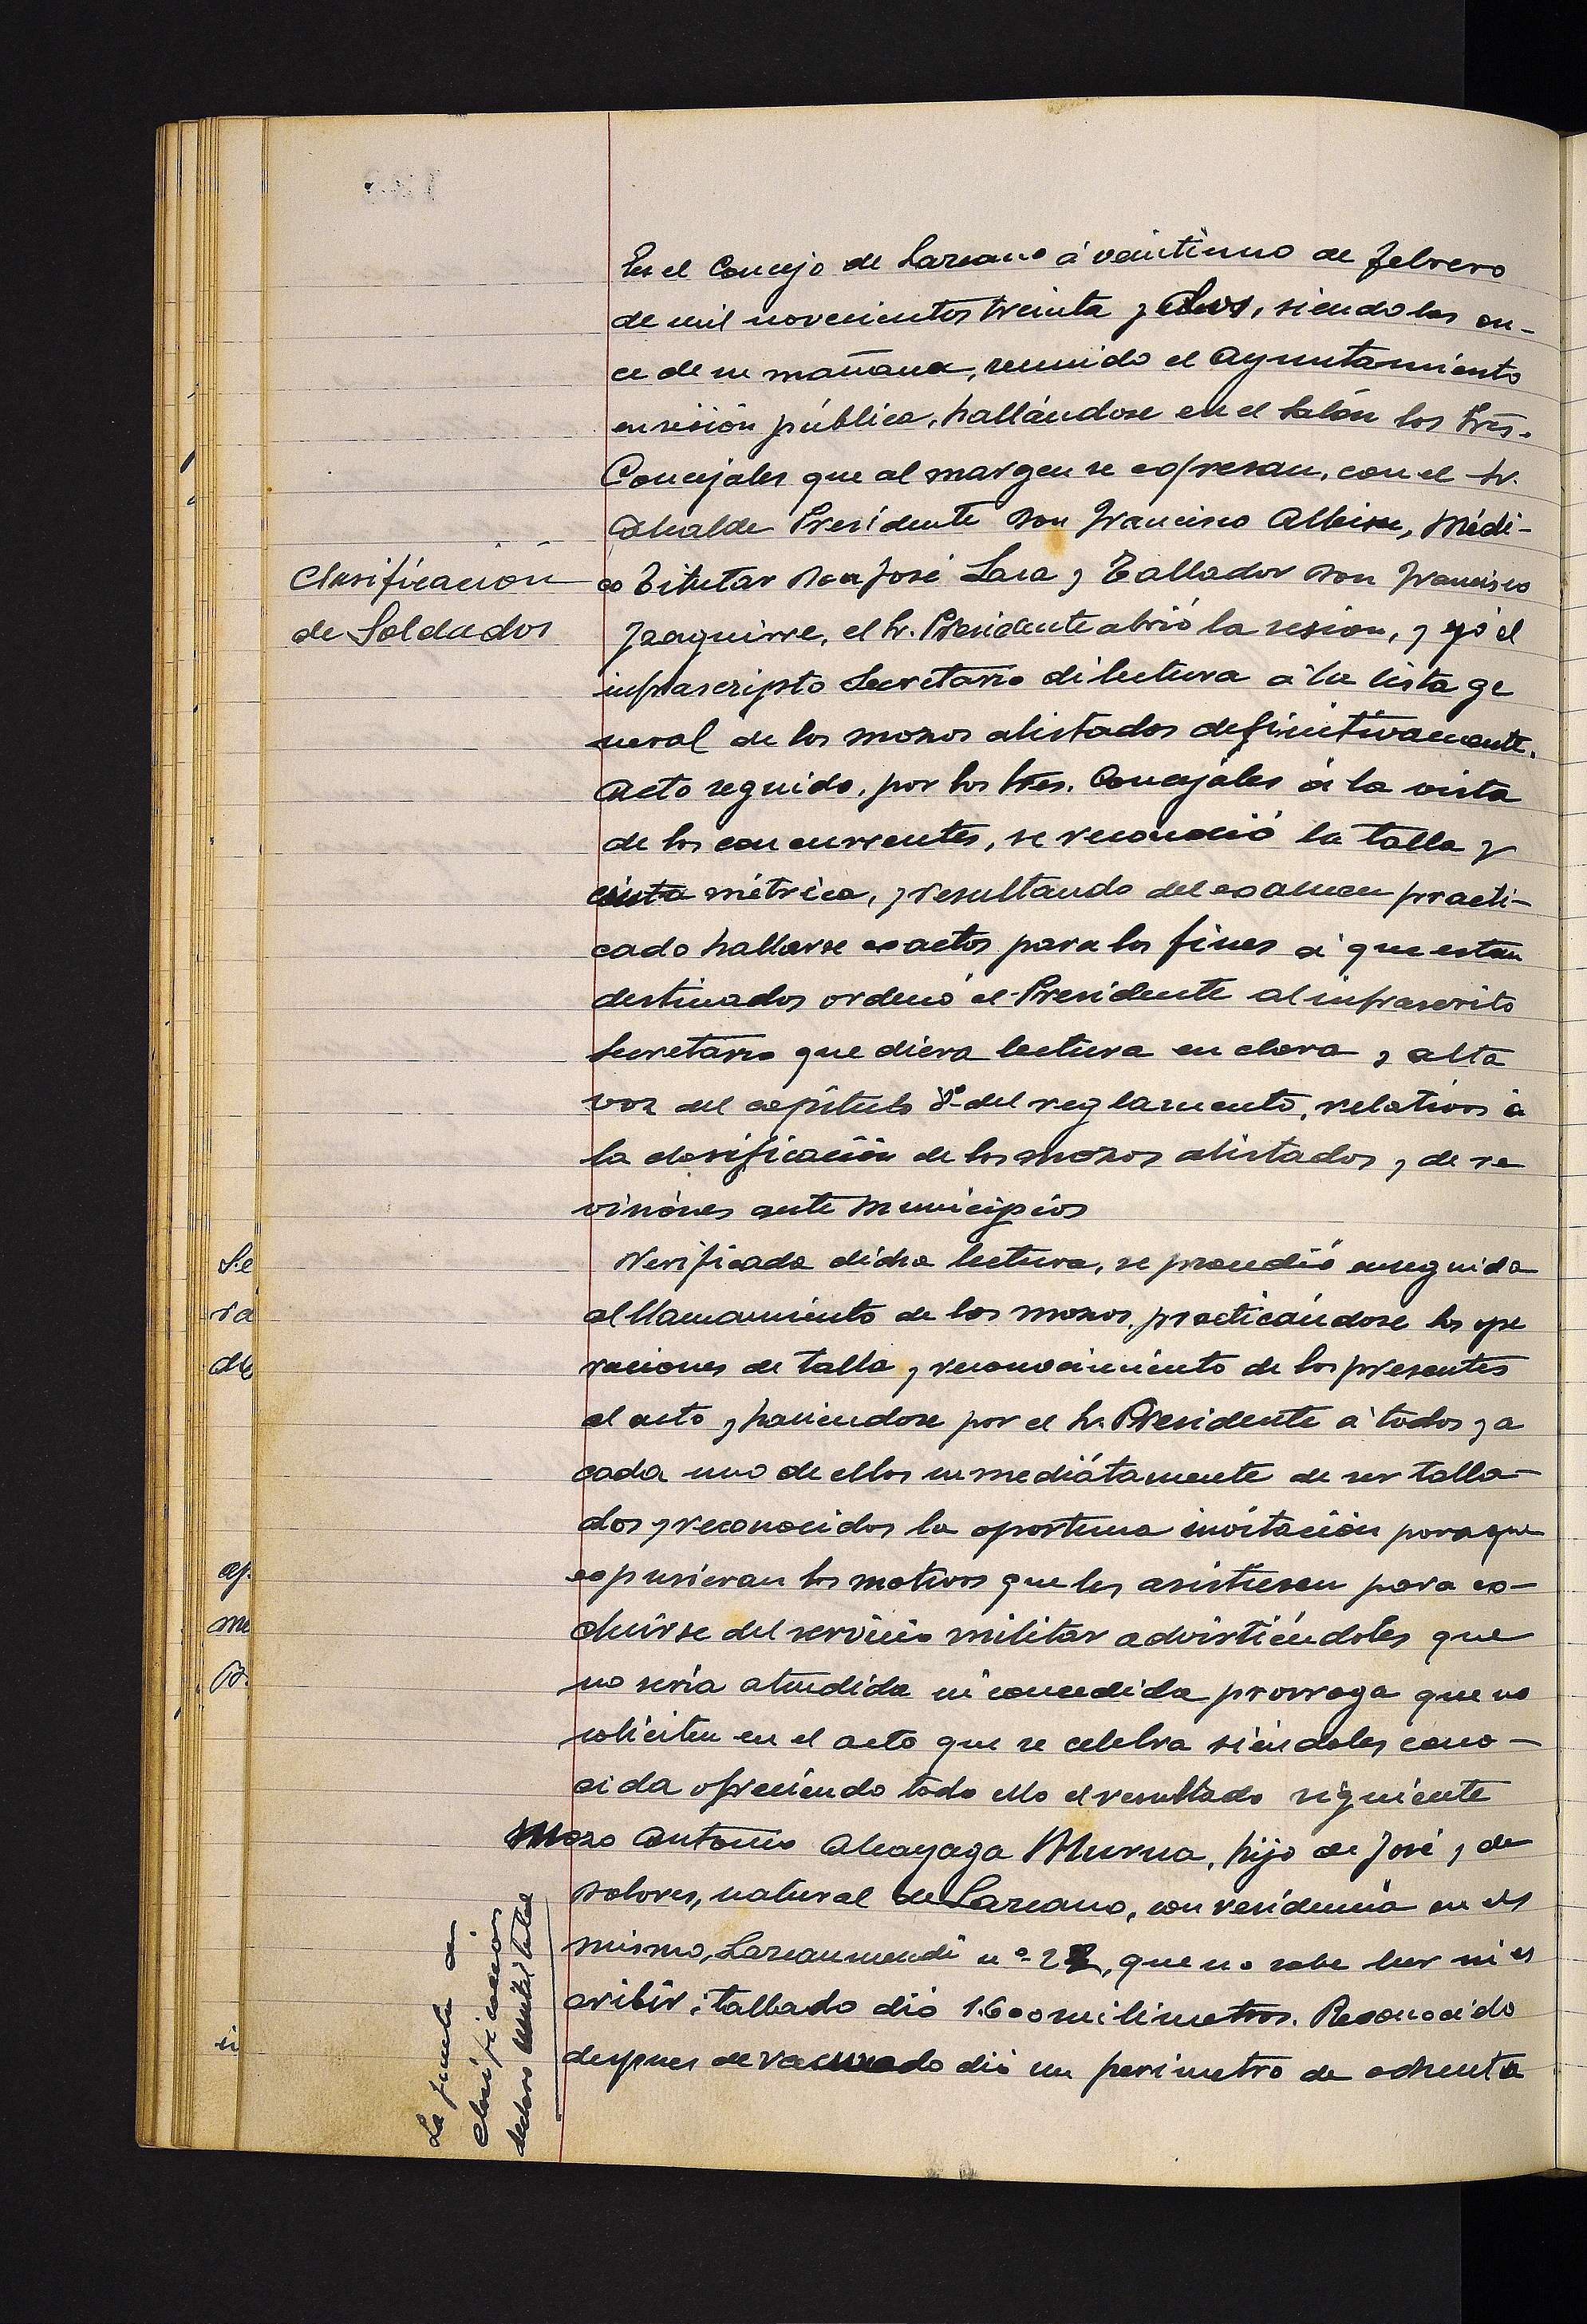 En el Concejo de Lazcano á veintiuno de febrero
de mil novecientos treinta y dos, siendo las on-
ce de su mañana, reunido el Ayuntamiento
en sesión pública, hallándose en el Salón los Sres.
Concejales que al margen se expresan, con el Sr.
Alcalde Presidente Don Francisco Albisu, Médi-
Clasificación
de Soldados
co Titutar Don José Lasa y Tallador Don Francisco
Yzaguirre, el Sr. Presidente abrió la sesion, y yo el
infrascripto Secretario di lectura á la lista ge
neral de los mozos alistados definitivamente.
Acto seguido, por los Sres. Concejales á la vista
de los concurrentes, se reconoció la talla y
cinta métrica, y resultando del examen practi-
cado hallarse exactos para los fines á que estan
destinados ordenó el Presidente al infrascrito
Secretario que diera lectura en clara y alta
voz del capítulo 8º del reglamento, relativos á
la clasificación de los mozos alistados y de re
visiónes ante Municipios
Verificada dicha lectura, se procedió enseguida
al llamamiento de los mozos, practicándose las ope
raciones de talla y reconocimiento de los presentes
al acto y haciendose por el Sr. Presidente á todos y a
cada uno de ellos inmediátamente de ser talla-
dos y reconocidos la oportuna invitación para que
expusieran los motivos que les asistiesen para ex-
cluirse del servicio militar advirtiéndoles que
no sería atendida ni concedida prorroga que no
soliciten en el acto que se celebra siéndoles cono-
cida ofreciendo todo ello el resultado siguiente
Mozo Antonio Alcayaga Murua, hijo de José y de
Dolores, natural de Lazcano, con residencia en el
mismo, Lazcanomendi nº 22, que no sabe leer ni es
cribir: tallado dió 1.600 milimetros. Reconocido
despues de vacunado dió un perimetro de ochenta
La junta de
clasificacion
declaro inutil total
Se
ra
de
ap.
me
B.